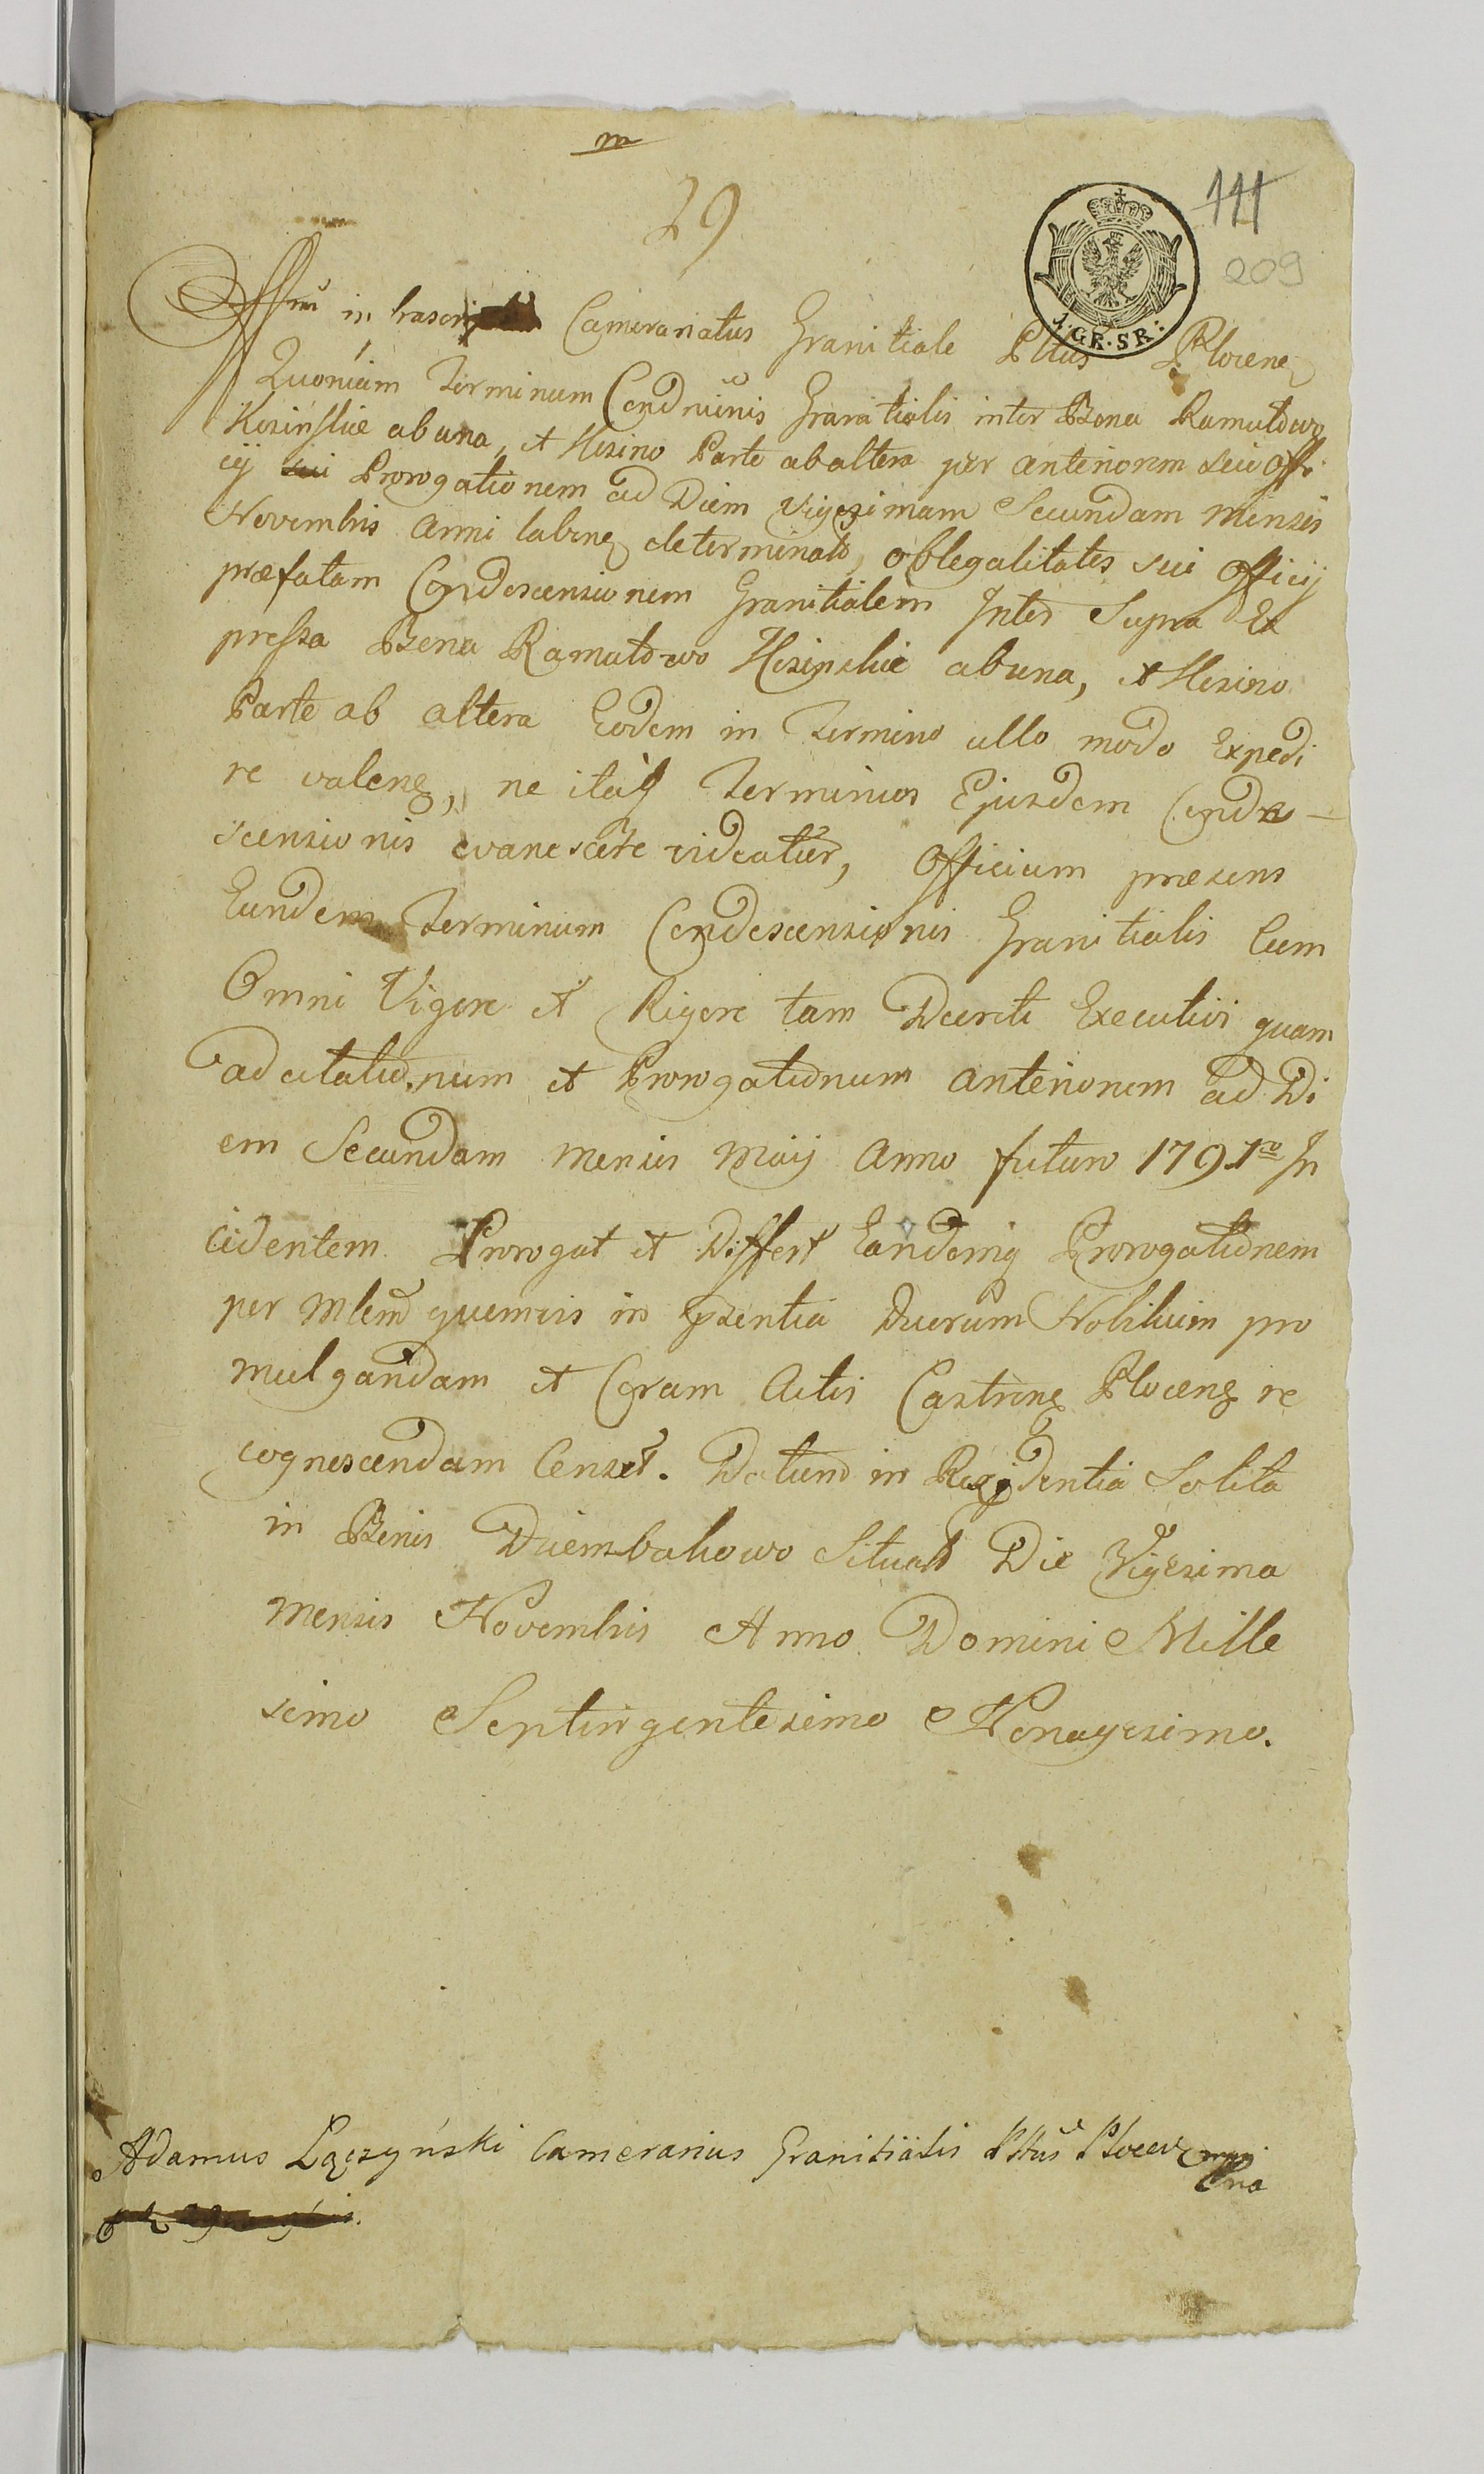 m
29
111
209
1·GR·SR:
Offm in frascrip Cameranatus Granitiale Pltus Plocens
Quoniam Terminum Condnūnis Granitialis inter Bona Ramułtowo
Kozinskie ab una, et Kozino Parte ab altera per anteriorem sui Offi
cij Prorogationem ad Diem Vigezimam Secundam mensis
Novembris anni labens determinato, ob legalitates sui Officij
præfatam Condescensionem Granitialem Inter Supra Ex
pressa Bona Ramułtowo Kozinskie ab una, et Kozino
Parte ab altera Eodem in Termino ullo modo Expedi
re valens, ne itaq Terminus Ejusdem Conde-
scensionis evanescere videatur, Officium præsens
Eundem Terminum Condescensionis Granitialis Cum
Omni Vigore et Rigore tam Decreti Executivi quam
ad citationum et Prorogationum anteriorem ad Di
em Secundam mensis Maij Anno futuro 1791mo In
cidentem Prorogat et Differt Eandemq Prorogationem
per Mlem quemvis in pzentia Duorum Nobilium pro
mulgandam et Coram Actis Castrens Plocens re
cognoscendam Censet. Datum in Rezidentia Solita
in Bonis Dziembakowo Situat Die Vigesima
mensis Novembris Anno Domini Mille
simo Septingentesimo Nonagesimo.
Adamus Łączyński Camerarius Granitialis Pltūs Plocens